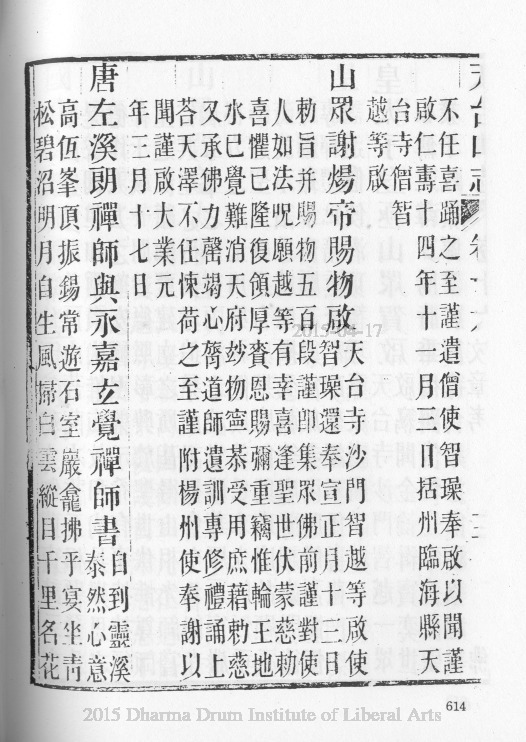 不任喜踊之至謹遣僧使智璪奉啟以聞謹
啟仁壽十四年十一月三日括州臨海縣天
台寺僧智
越等啟
山眾謝煬帝賜物啟
天台寺沙門智越等啟使
智璪還奉宣正月十三日
勑旨并賜物五百段謹卽集眾佛前謹對使
人如法呪願越等有幸喜逢聖世伏蒙慈勑
喜懼已隆復領厚賚恩賜彌重竊惟輪王地
水已覺難消天府妙物寧恭受用庶藉勑慈
又承佛力罄竭心膂道師遺訓專修禮誦上
荅天澤不任悚荷之至謹附楊州使奉謝以
聞謹啟大業元
年三月十七日
唐左溪朗禪師與永嘉玄覺禪師書
自到靈溪
泰然心意
高低峯頂振錫常遊石室巖龕拂乎宴坐靑
松碧沼明月自生風掃白雲縱目千里名花
2015-04-17
614
2015 Dharma Drum Institute of Liberal Arts